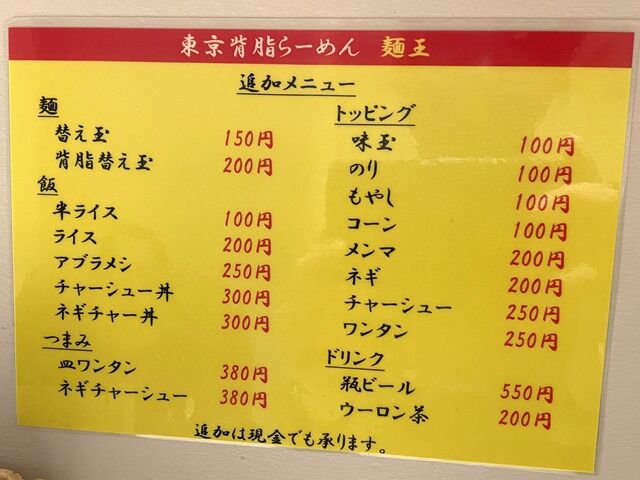 東京背脂らーめん 麺王
追加メニュー
麺
替え玉 150円
背脂替え玉 200円
飯
半ライス 100円
ライス 200円
アブラメシ 250円
チャーシュー丼 300円
ネギチャー丼 300円
つまみ
皿ワンタン 380円
ネギチャーシュー 380円
トッピング
味玉 100円
のり 100円
もやし 100円
コーン 100円
メンマ 200円
ネギ 200円
チャーシュー 250円
ワンタン 250円
ドリンク
瓶ビール 550円
ウーロン茶 200円
追加は現金でも承ります。